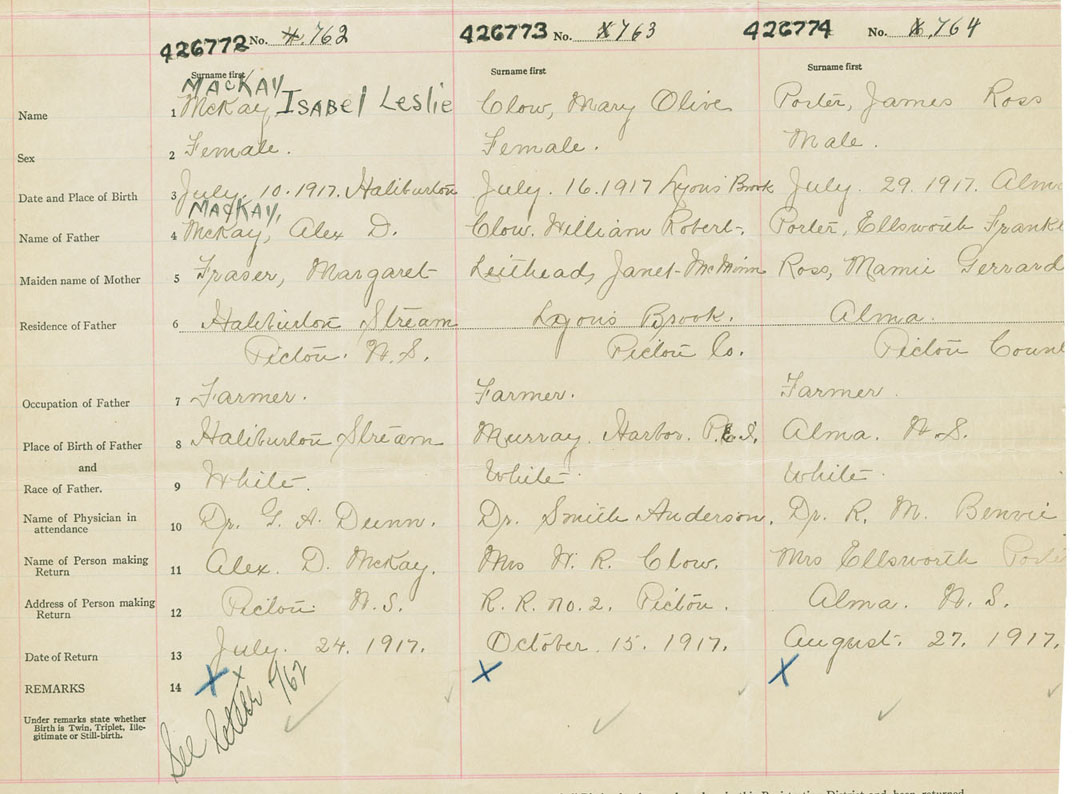 426772 No. 762
426773 No. 763
426774 No. 764
Surname first
Surname first
Surname first
MACKAY
Name 1 McKay, ISABEl Leslie Clow, Mary Olive Porter, James Ross
Sex 2 Female. Female. Male.
Date and Place of Birth 3 July. 10. 1917. Haliburton July. 16. 1917 Lyons Brook July. 29. 1917. Alma
MACKAY,
Name of Father 4 McKay, Alex D. Clow. William Robert. Porter, Ellsworth Frankl
Maiden name of Mother 5 Fraser, Margaret Leithead, Janet McMinn Ross, Mamie Gerrard
Residence of Father 6 Haliburton Stream Lyons Brook. Alma.
Pictou. N.S. Pictou Co. Pictou Count
Occupation of Father 7 Farmer. Farmer. Farmer.
Place of Birth of Father 8 Haliburton Stream Murray Harbor. P.E.I. Alma. N.S.
and
Race of Father. 9 White. White. White.
Name of Physician in attendance 10 Dr. G. A. Dunn. Dr. Smith Anderson. Dr. R. M. Benvie
Name of Person making Return 11 Alex. D. McKay. Mrs W. R. Clow. Mrs Ellsworth Porte
Address of Person making Return 12 Pictou N.S. R. R. no. 2. Pictou. Alma. N.S.
Date of Return 13 July. 24. 1917. October. 15. 1917. August. 27. 1917.
REMARKS 14 X X X
See letter 762
Under remarks state whether
Birth is Twin, Triplet, Ille-
gitimate or Still-birth.